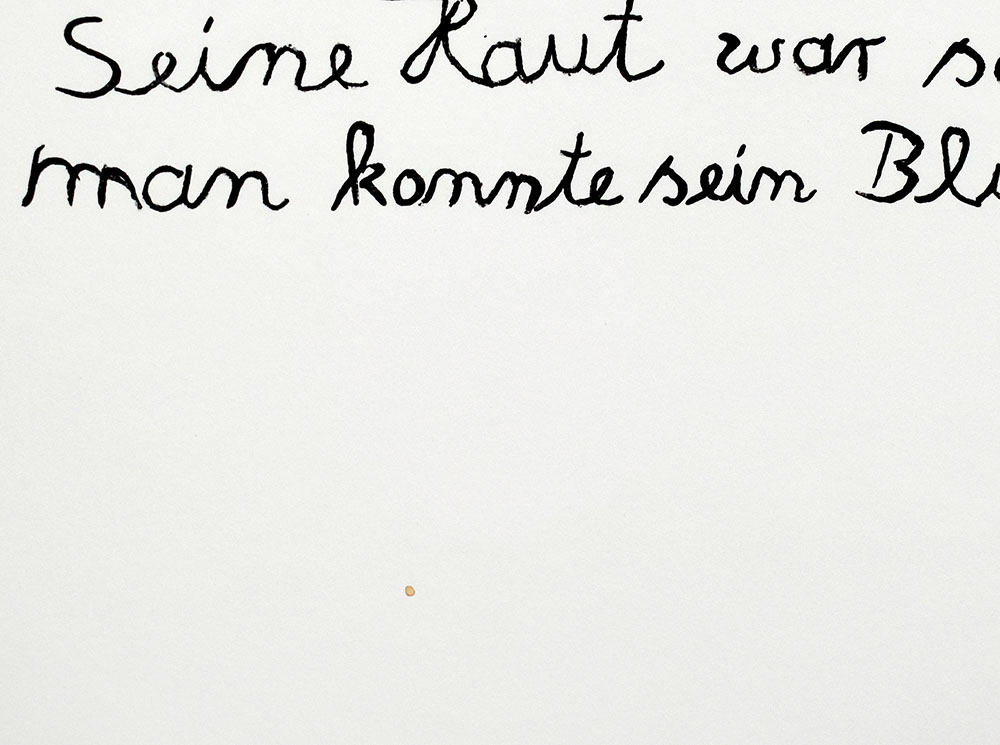 Seine Haut war s
man konnte sein Bl